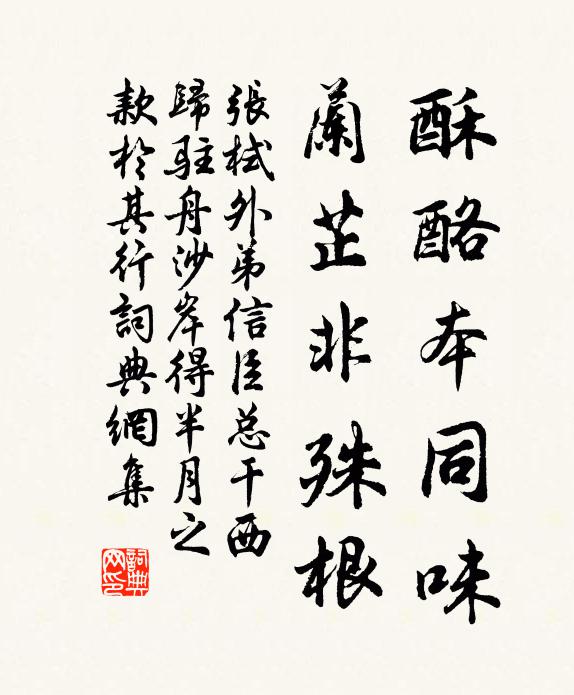 酥酪本同味
蘭芷非殊根
張栻外弟信臣总干西
歸駐舟沙岸得半月之
款於其行詞典網集
詞典網印